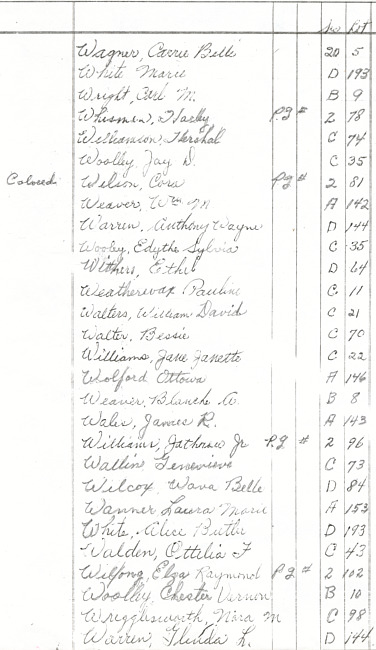 Sec Lot
Wagner, Carrie Belle 20 5
White Marie D 193
Wright, Carl M. B 9
Whisman, Harley P.G # 2 78
Williamson, Hershal C 74
Woolley, Jay D. C 35
Colored Wilson, Cora P.G # 2 81
Weaver, Wm M A 142
Warren, Anthony Wayne D 144
Wooley, Edythe Sylvia C 35
Withers, Ethel D 64
Weatherwax Pauline C 11
Walters, William David C 21
Walter, Bessie C 70
Williams, Jane Janette C 22
Wolford Ottowa A 146
Weaver, Blanche A. B 8
Wales, James R. A 143
Williams, Jr P.G # 2 96
Wallin, Genevieve C 73
Wilcox, Wava Belle D 84
Wanner Laura Marie A 153
White, Alice Butler D 193
Walden, Ottilia F C 43
Wilfong, Elza Raymond P.G # 2 102
Woolley, Chester Vernon B 10
Wrigglesworth, Nora M C 98
Warren, Glenda L. D 144